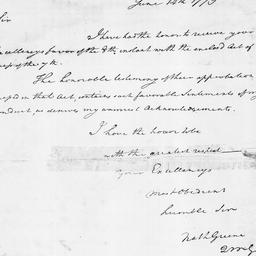 Sir
I have had the honor to receive your
Excellencys favor of the 8th instant with the enclosed Act of
of the 7th.
The honorable testimony of their approbation
in that Act, contains such favorable Sentiments of my
conduct, as deserves my warmest Acknowledgements.
I have the honor to be
with the greatest respect
your Excellencys
most Obedient
humble Ser
Nath Greene
QMG